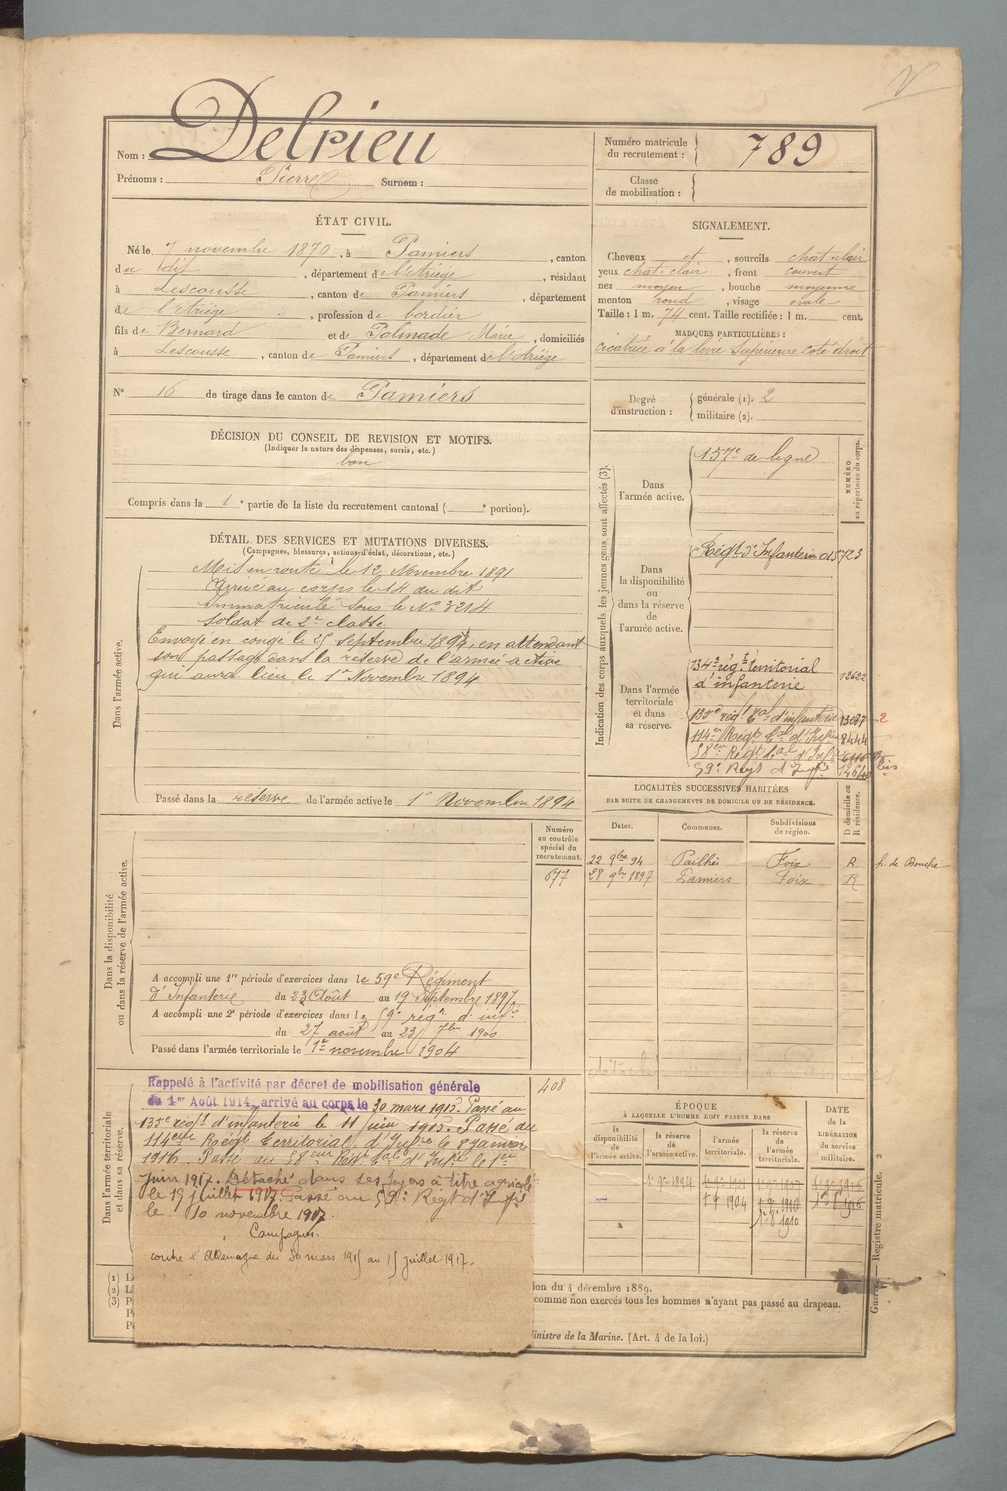 Nom : Delrieu
Prénoms : Pierre Surnom :
Numéro matricule du recrutement : 789
Classe de mobilisation :
ÉTAT CIVIL.
Né le 7 novembre 1870, à Pamiers, canton
du dit, département de l'Ariège, résidant
à Lescousse, canton de Pamiers, département
de l'Ariège, profession de bordier
fils de Bernard et de Palmade Marie, domiciliés
à Lescousse, canton de Pamiers, département de l'Ariège
N° 16 de tirage dans le canton de Pamiers
DÉCISION DU CONSEIL DE REVISION ET MOTIFS.
(Indiquer la nature des dispenses, sursis, etc.)
bon
Compris dans la 1e partie de la liste du recrutement cantonal ( e portion).
SIGNALEMENT.
Cheveux et, sourcils chat-clair
yeux chat-clair, front couvert
nez moyen, bouche moyenne
menton rond, visage ovale
Taille : 1 m. 74 cent. Taille rectifiée : 1 m. cent.
MARQUES PARTICULIÈRES :
cicatrice à la lèvre supérieure coté droit
Degré d'instruction : générale (1). 2
militaire (2).
DÉTAIL DES SERVICES ET MUTATIONS DIVERSES.
(Campagnes, blessures, actions d'éclat, décorations, etc.)
Dans l'armée active.
Mis en route le 12 Novembre 1891
Arrivé au corps le 14 du dit
Immatriculé sous le N° 3214
Soldat de 2e classe
Envoyé en congé le 25 septembre 1894, en attendant
son passage dans la réserve de l'armée active
qui aura lieu le 1er Novembre 1894
Passé dans la réserve de l'armée active le 1er Novembre 1894
Indication des corps auxquels les jeunes gens sont affectés (3).
NUMÉRO au répertoire du corps.
Dans l'armée active.
157e de ligne
Dans la disponibilité ou dans la réserve de l'armée active.
Régt d'Infanterie 5723
Dans l'armée territoriale et dans sa réserve.
134e régt territorial
d'infanterie 12622
135e régt tal d'infanterie 13087 2
114e Régt tal d'Infie 8444
58e Régt tal d'Infie bis
59e Regt d'Infie
LOCALITÉS SUCCESSIVES HABITÉES
PAR SUITE DE CHANGEMENTS DE DOMICILE OU DE RÉSIDENCE.
D domicile ou R résidence.
Dates. Communes. Subdivisions de région.
22 9bre 94 Pailhès Foix R
28 9bre 1897 Pamiers Foix R
Dans la disponibilité ou dans la réserve de l'armée active.
Numéro au contrôle spécial du recrutement.
677
A accompli une 1re période d'exercices dans le 59e Régiment
d'Infanterie du 23 Août au 19 Septembre 1897.
A accompli une 2e période d'exercices dans le 59e régt d'infie
du 27 août au 23 7bre 1900
Passé dans l'armée territoriale le 1er novembre 1904
Dans l'armée territoriale et dans sa réserve.
408
Rappelé à l'activité par décret de mobilisation générale
du 1er Août 1914, arrivé au corps le 30 mars 1915. Passé au
135e régt d'infanterie le 11 juin 1915. Passé au
114eme Régt Territorial d'Infie le 8 janvier
1916. Passé au 58eme Régt tal d'Infie le 1er
Juin 1917. Détaché dans ses foyers à titre agricole
le 15 juillet 1917. Passé au 59e Regt d'Infie
le 10 novembre 1917.
Campagnes.
contre l'Allemagne du 30 mars 1915 au 15 juillet 1917.
ÉPOQUE
À LAQUELLE L'HOMME DOIT PASSER DANS
la disponibilité de l'armée active.
la réserve de l'armée active.
l'armée territoriale.
la réserve de l'armée territoriale.
DATE de la LIBÉRATION du service militaire.
1er 9bre 1894
ion du 4 décembre 1889.
comme non exercés tous les hommes n'ayant pas passé au drapeau.
inistre de la Marine. (Art. 4 de la loi.)
Registre matricule. 2